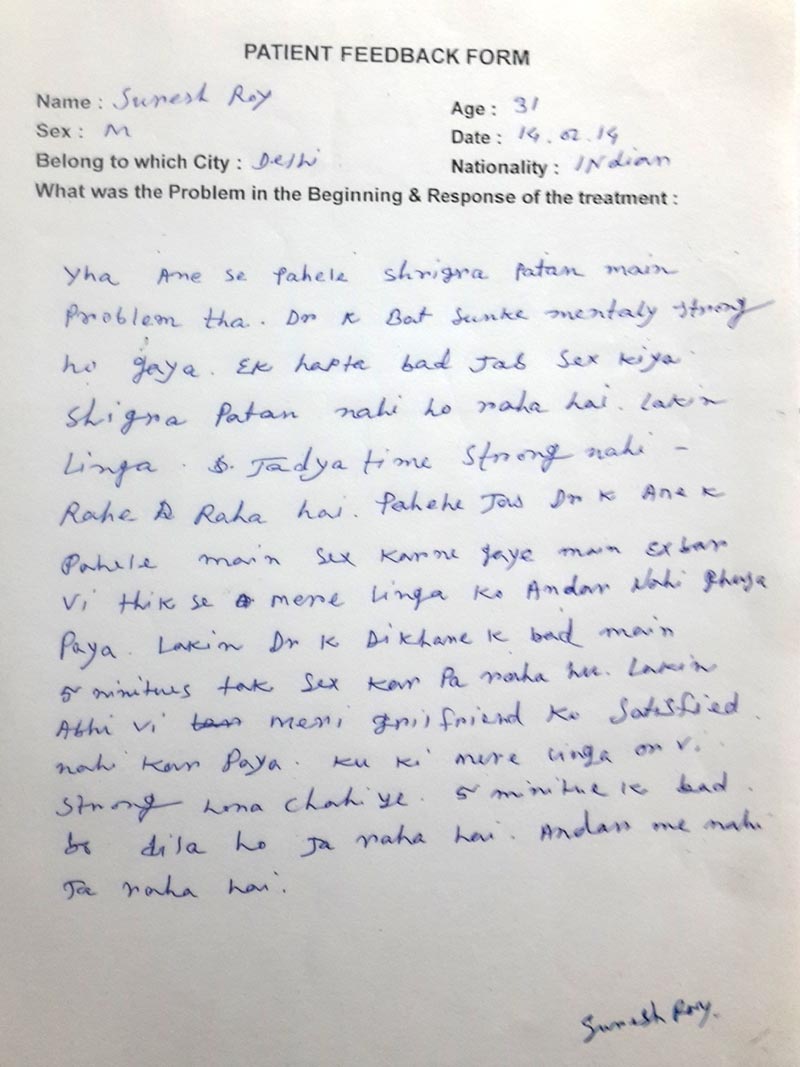 PATIENT FEEDBACK FORM
Name : Suresh Roy
Age : 31
Sex : M
Date : 14.02.19
Belong to which City : Delhi
Nationality : INdian
What was the Problem in the Beginning & Response of the treatment :
Yha Ane se Pahele Shrigra Patan main
Problem tha. Dr K Bat Sunke mentaly strong
ho gaya. Ek hapta bad Jab Sex Kiya
Shigra Patan nahi ho raha hai. Lakin
Linga. Jadya time Strong nahi -
Rahe Raha hai. Pahehe Jab Dr K Ane K
Pahele main Sex Karne gaye main Ekbar
Vi thik se mere Linga Ko Andar Nahi ghusa
Paya. Lakin Dr K Dikhane K bad main
5 minitues tak Sex Kar Pa raha hu. Lakin
Abhi Vi meri grilfriend Ko Satisfied
nahi Kar Paya. Ku Ki mere Linga or Vi
Strong hona chahiye. 5 minitue K bad.
dila ho Ja raha hai. Andar me nahi
Ja raha hai.
Suresh Roy.